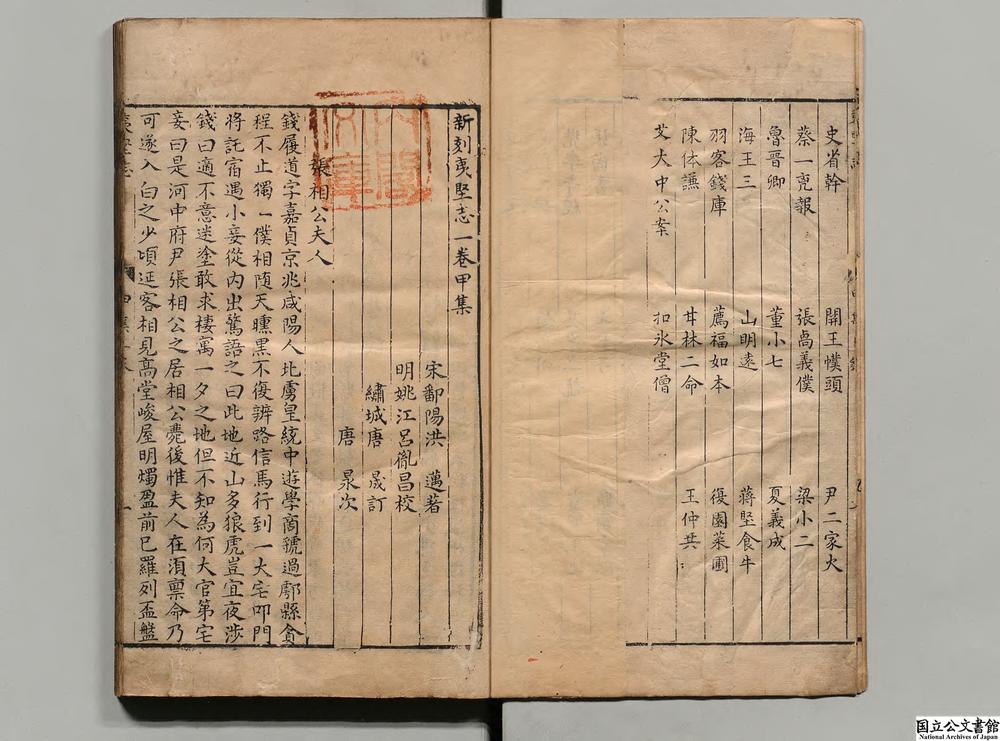 史省幹　開王幞頭　尹二家火
蔡一兗報　張卨義僕　梁小二
魯晉卿　董小七　夏義成
海王三　山明遠　蔣堅食牛
羽客錢庫　薦福如本　復園菜圃
陳体謙　甘林二命　王仲共
艾大中公案　扣氷堂僧
新刻夷堅志一卷甲集
宋鄱陽洪　邁著
明姚江呂胤昌校
繡城唐　晟訂
唐　㫤次
張相公夫人
錢履道字嘉貞京兆咸陽人北虜皇統中遊學商虢過鄠縣貪
程不止獨一僕相随天曛黒不復辨路信馬行到一大宅叩門
將託宿遇小妾從内出驚語之曰此地近山多狼虎豈宜夜涉
錢曰適不意迷塗敢求棲寓一夕之地但不知為何大官第宅
妾曰是河中府尹張相公之居相公薨後惟夫人在湏禀命乃
可遂入白之少頃延客相見髙堂峻屋明燭盈前已羅列盃盤
内閣文庫
国立公文書館
National Archives of Japan